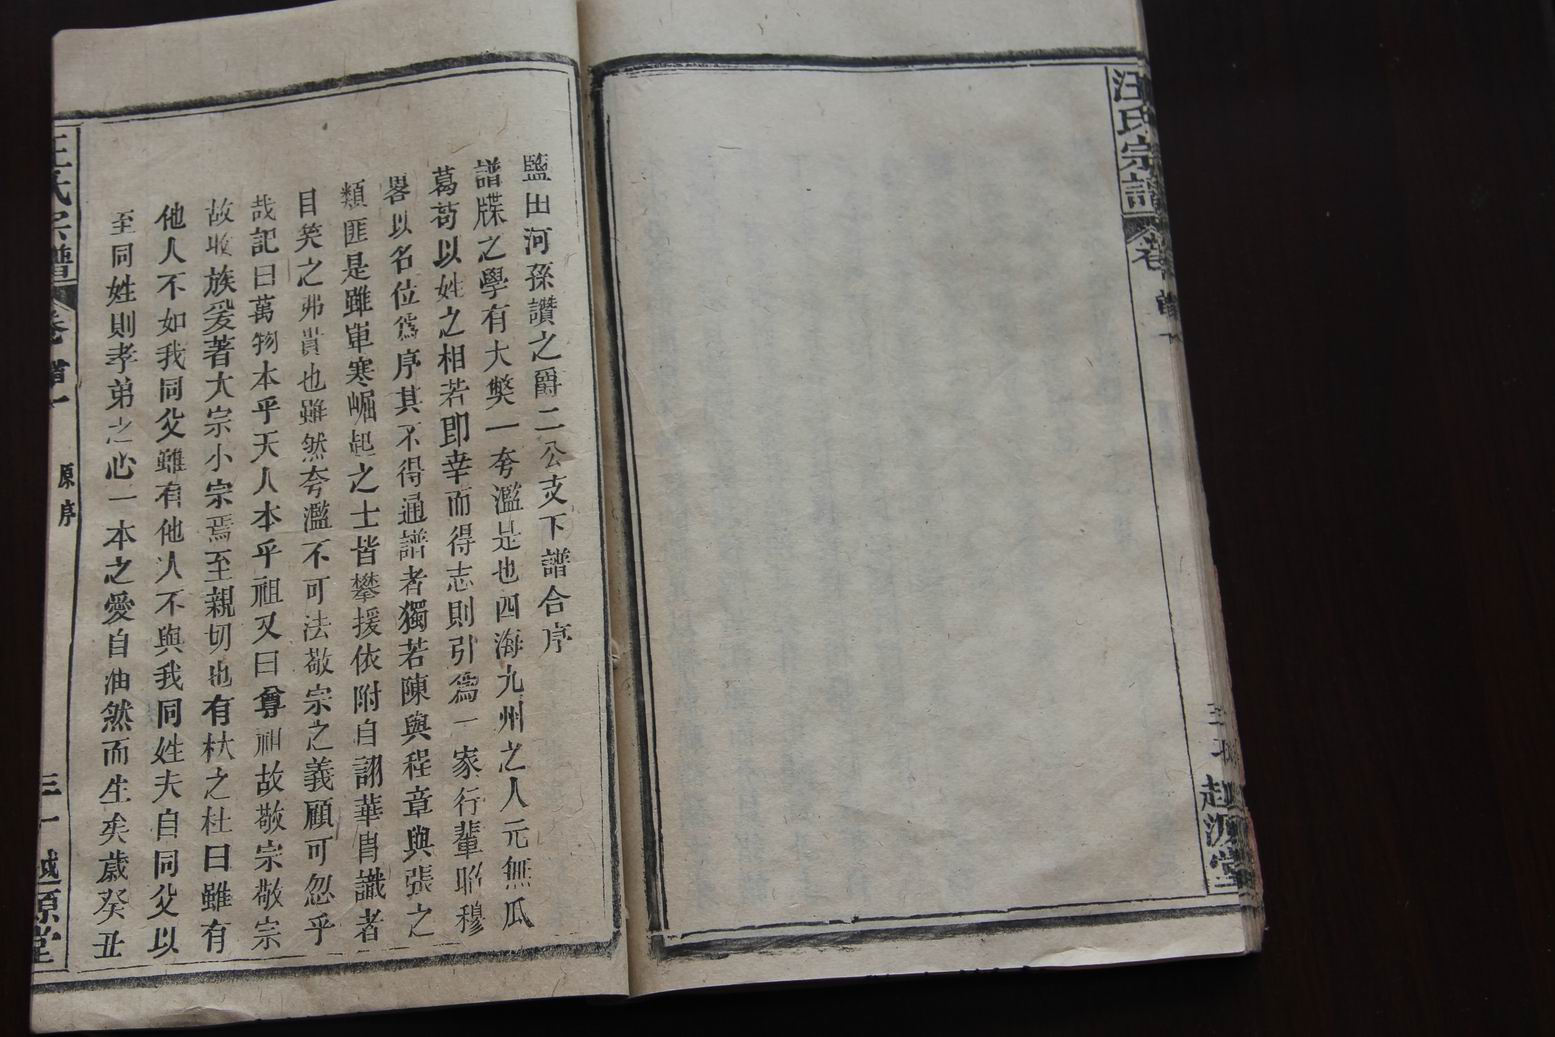 汪氏宗譜
卷首一
越源堂
鹽田河孫讚之爵二公支下譜合序
譜牒之學有大獘一夸濫是也四海九州之人元無瓜
葛苟以姓之相若即幸而得志則引爲一家行輩昭穆
畧以名位爲序其不得通譜者獨若陳與程章與張之
類匪是雖單寒崛起之士皆攀援依附自詡華胄識者
目笑之弗貴也雖然夸濫不可法敬宗之義顧可忽乎
哉記曰萬物本乎天人本乎祖又曰尊祖故敬宗敬宗
故收族爰著大宗小宗焉至親切也有杕之杜曰雖有
他人不如我同父雖有他人不與我同姓夫自同父以
至同姓則孝弟之心一本之愛自油然而生矣歲癸丑
汪氏宗譜
卷首一
原序
三一
越源堂